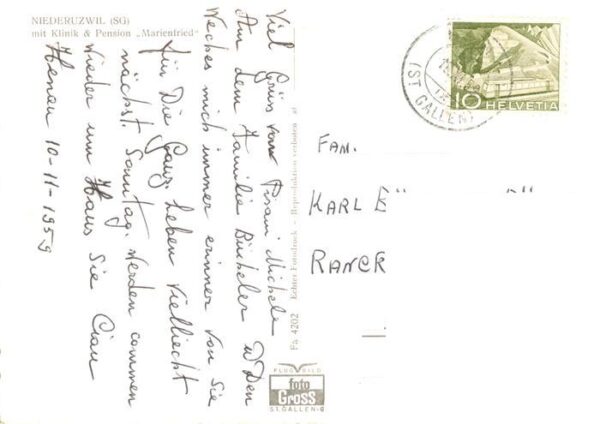 NIEDERUZWIL (SG)
mit Klinik & Pension „Marienfried"
Viel Grüs von Pisani Michele
Am dem Familie Bücheler W Den
Weches mich immer erinner von Sie
für Die Ganz. Leben Vielliecht
nächst. Sonntag. Werden commen
Wieder um Haus Sie Ciau
Henau 10-11-1959
Fa. 4202 Echter Fotodruck - Reproduktion verboten
FLUGBILD
foto
GROSS
ST. GALLEN
(ST GALLEN)
10 HELVETIA
FAM.
KARL
RANCK